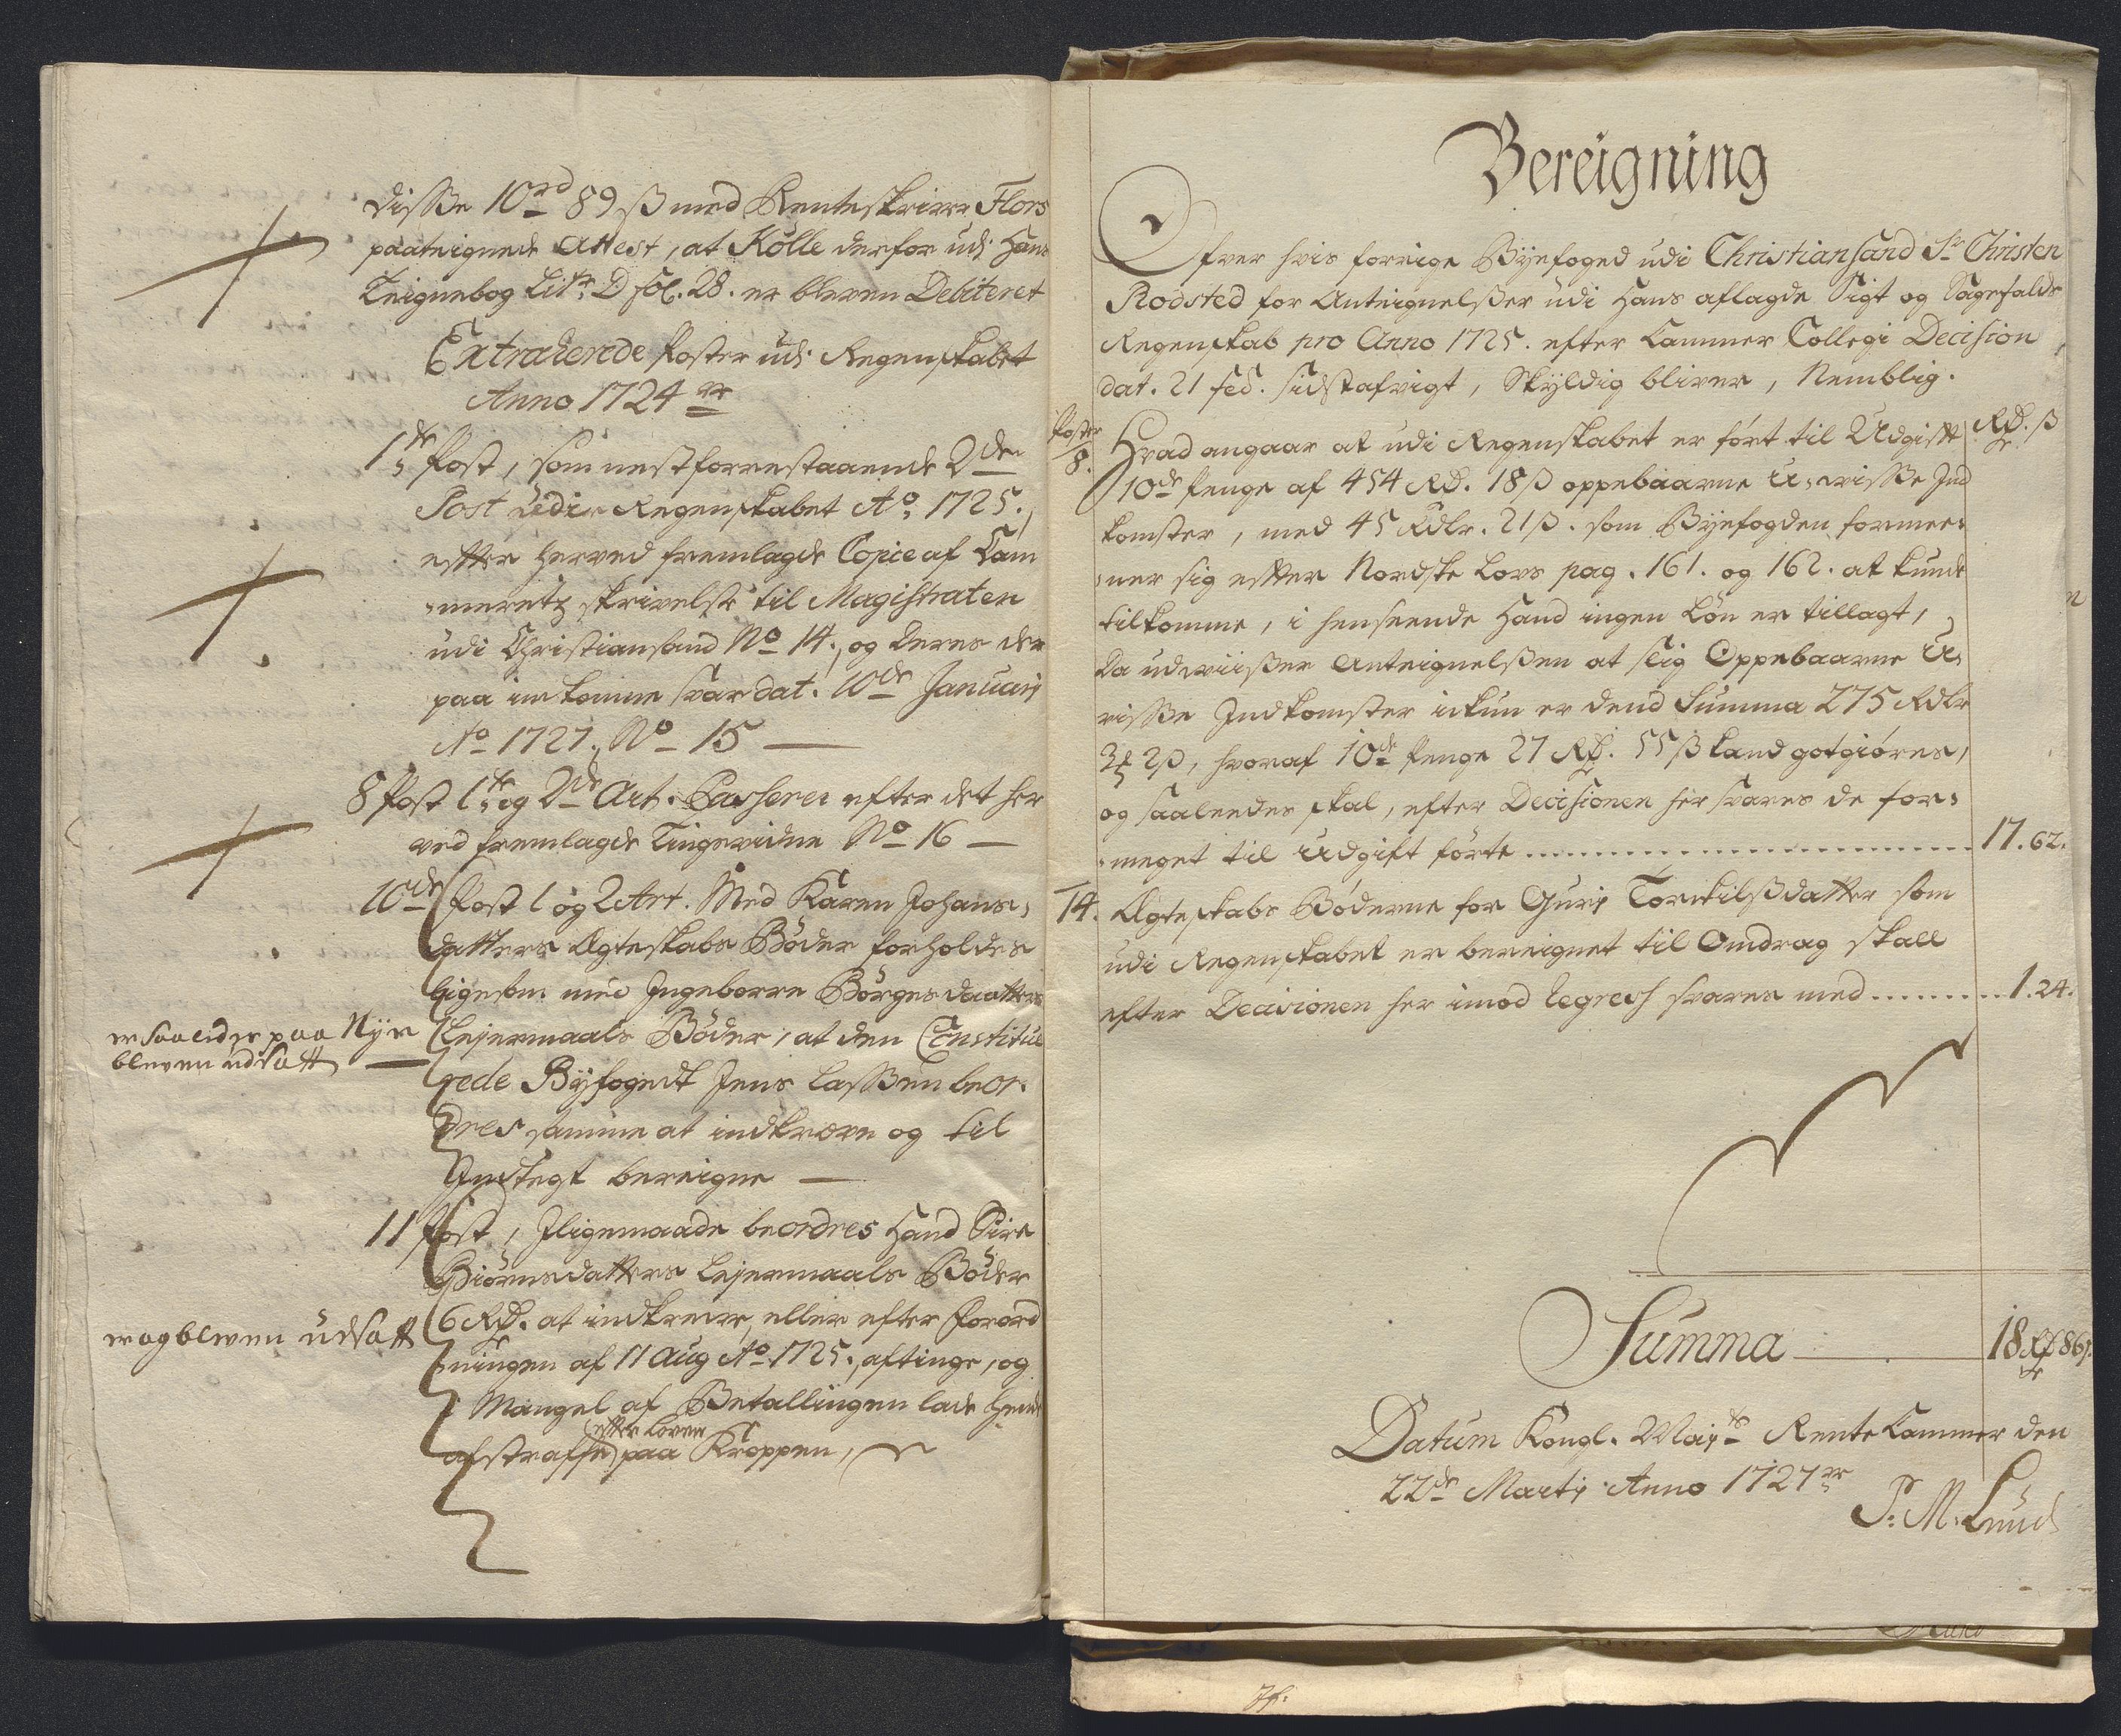 disse 10 rd 89 ß med Renteskriver Flors
paateignede Attest, at Kölle derfor udj Hans
Teignebog Litr. D fol. 28. er bleven Debiteret
Extraherede Poster udj Regenskabet
Anno 1724
1 Post, som nestforrestaaende 2den
Post udi Regenskabet Ao 1725.
efter herved fremlagde Copie af Cam
meretz skrivelse til Magistraten
udi Christiansand No 14., og deres der
paa indkomne svar dat. 10de Januarij
Ao 1727. No 15
8 Post 1te og 2de Art. Passerer efter det her
ved fremlagde Tingsvidne No 16
10de Post 1 og 2 Art. Med Karen Johans,
datters Ægteskabs Böder forholdes
ligesom med Ingeborre Börgesdaatters
Lejermaals Böder, at den Constitue
rede Byfogedt Jens Lassen beor,
dres samme at indkræve og til
Indtegt bereigne
er saaledes paa Nÿe
bleven udsatt
11 Post, Iligemaade beordres Hand Sire
Biörnsdatters Lejermaals Böder
6 Rd. at indkræve, eller efter Forord
ningen af 11 Aug Ao 1725., aftinge, og
Mangel af Betallingen lade hende
efter Loven
afstraffe paa Kroppen,
er og bleven udsatt
Bereigning
Ofver hvis forrige Bÿefoged udi Christiansand Sr Christen
Rodsted for Anteignelsser udi Hans aflagde Sigt og Sagefalds
Regenskab pro Anno 1725. efter Cammer Collegi Decision
dat. 21 feb. sidstafvigt, Skÿldig bliver, Nemblig.
Poster
Rd. ß
8. Hvad angaar at udi Regenskabet er fört til Udgift
10de Penge af 454 Rd. 18 ß oppebaarne U, visse Ind
komster, med 45 Rdlr. 21 ß. som Bÿefogden formee,
ner sig efter Nordske Lovs pag. 161. og 162. at kunde
tilkomme, i henseende Hand ingen Lön er tillagt,
Da udviisser Anteignelssen at slig Oppebaarne U,
visse Indkomster ickun er dend Summa 275 Rdlr
3 2 ß, hvoraf 10de Penge 27 Rd. 55 ß kand gotgiöres,
og saaleedes skal, efter Decisionen her svares de for,
meget til Udgift förte 17. 62.
14. Ægteskabs Böderne for Gurj Torckilssdatter som
udi Regenskabet er bereignet til Omdrag skall
efter Decisionen her imod Regress svares med 1. 24.
Summa 18 Rd 86 ß.
Datum Kongl. Maj:ts Rente Cammer den
22de Martj Anno 1727
P. M. Lund